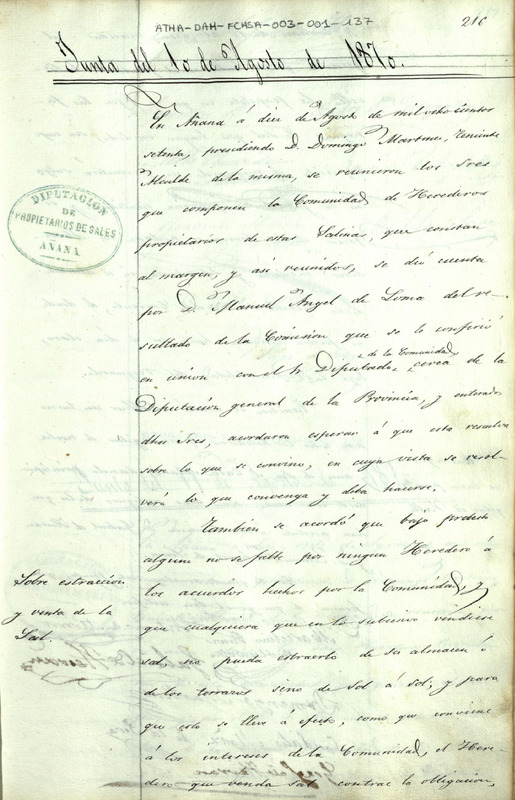 ATHA-DAH-FCHSA-003-001-137
216
Junta del 10 de Agosto de 1870.
En Añana á diez de Agosto de mil ocho cientos
setenta, presidiendo D. Domingo Martinez, Teniente
Alcalde de la misma, se reunieron los Sres
que componen la Comunidad de Herederos
propietarios de estas Salinas, que constan
al margen, y asi reunidos, se dió cuenta
por D. Manuel Angel de Loma del re-
sultado de la Comision que se le confirió
en union con el Sr Diputado de la Comunidad, cerca de la
Diputacion general de la Provincia, y enterados
dhos Sres, acordaron esperar á que esta resuelva
sobre lo que se convino, en cuya vista se resol-
verá lo que convenga y deba hacerse.
Tambien se acordó que bajo protesto
alguno no se falte por ningun Heredero á
los acuerdos hechos por la Comunidad, y
que cualquiera que en lo subcesivo vendiese
sal, no pueda estraerla de su almacen ó
de los terrazos sino de sol á sol; y para
que esto se lleve á efecto, como que conviene
á los intereses de la Comunidad, el Here-
dero que venda sal contrae la obligacion,
DIPUTACION
DE
PROPIETARIOS DE SALES
AÑANA
Sobre estraccion
y venta de la
Sal.